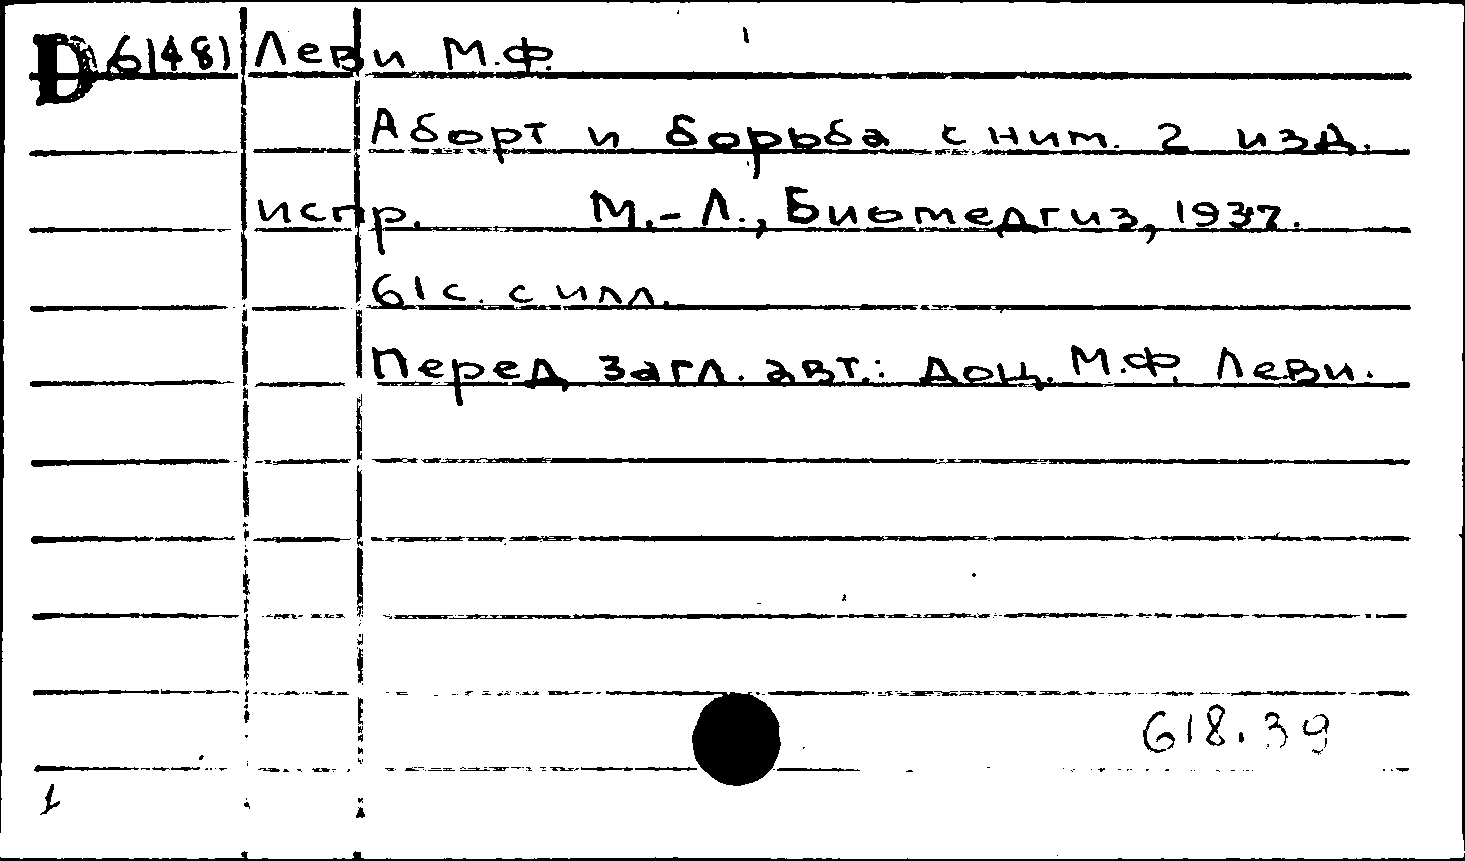 D 61481 Леви М.Ф.
Аборт и борьба с ним. 2 изд.
испр. М.-Л., Биомедгиз, 1937.
61 с. с илл.
Перед загл. авт.: Доц. М.Ф. Леви.
618.39
1